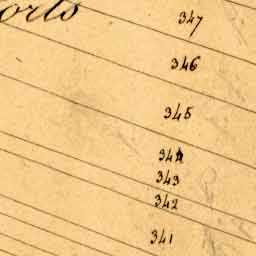 orts
347
346
345
344
343
342
341